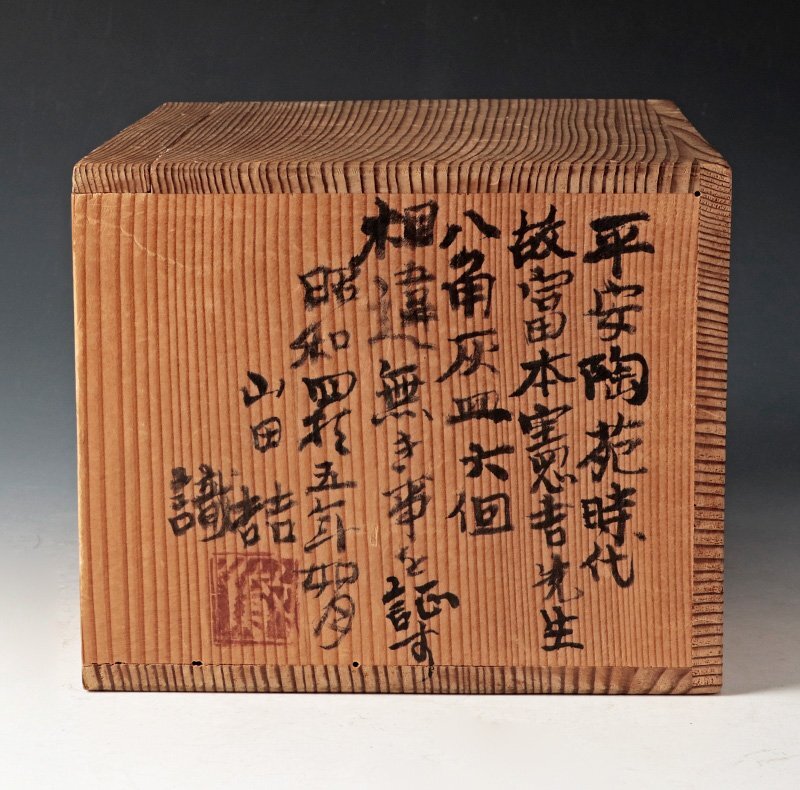 平安陶苑時代
故富本憲吉先生
八角灰皿六個
相違無き事を証す
昭和四拾五年如月
山田 喆
識